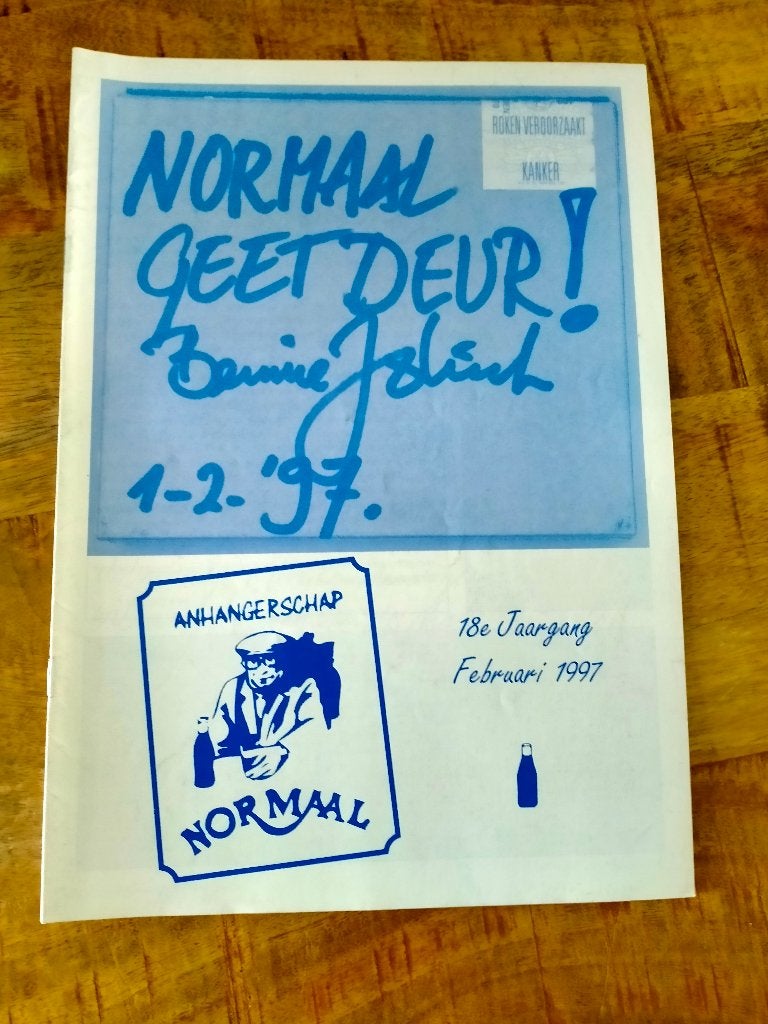 ROKEN VEROORZAAKT
KANKER
NORMAAL
GEET DEUR!
Bennie Jolink
1-2-'97.
ANHANGERSCHAP
NORMAAL
18e Jaargang
Februari 1997